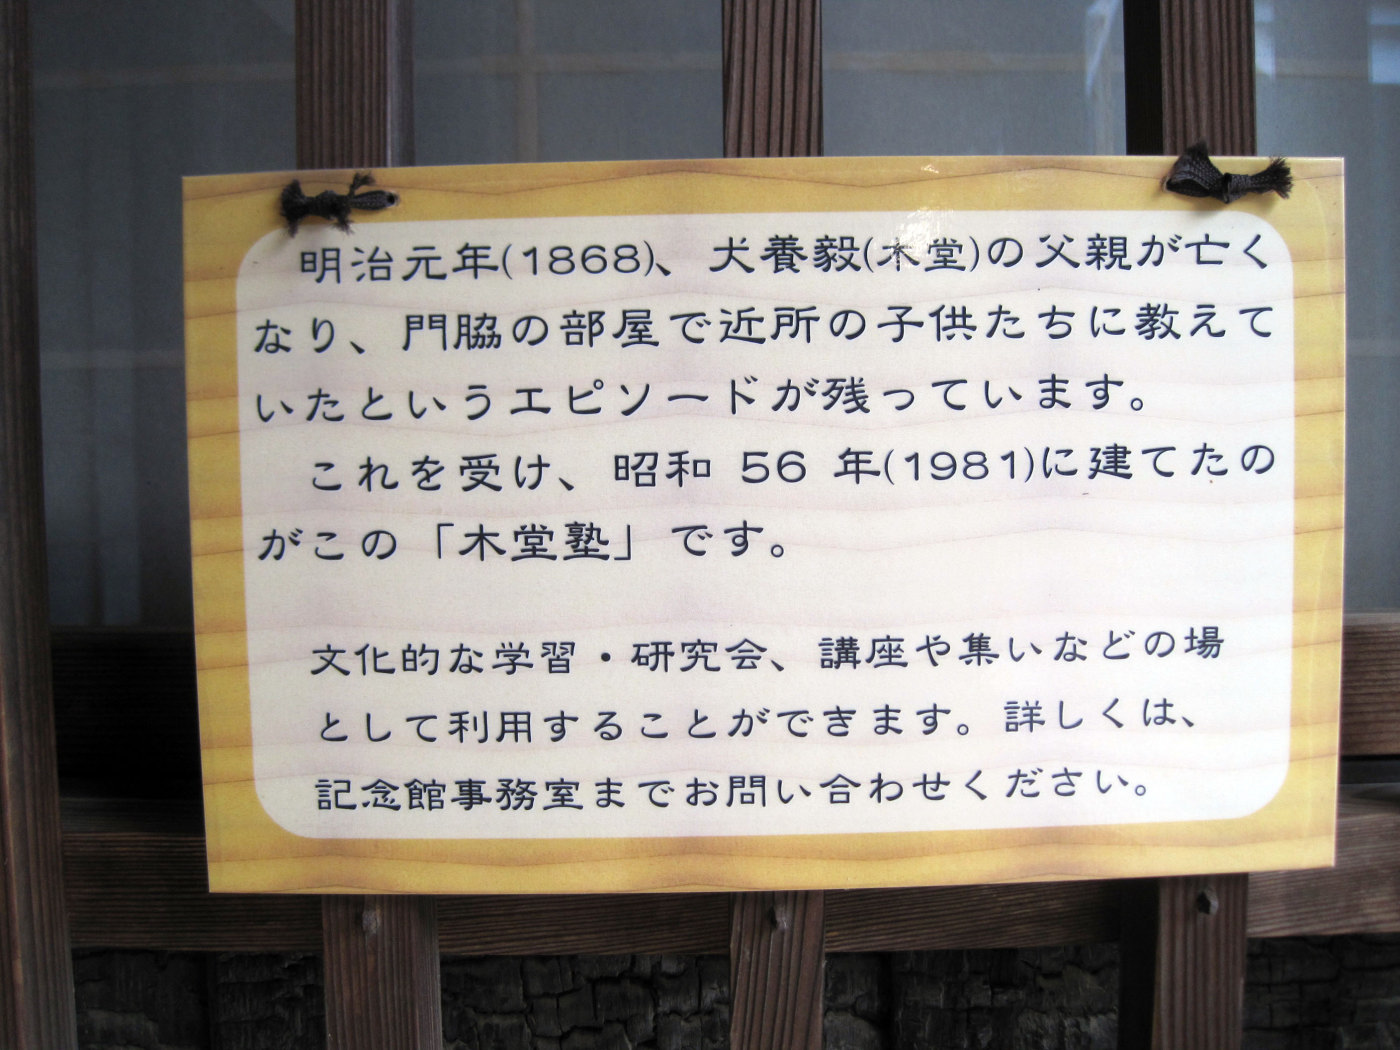 明治元年(1868)、犬養毅(木堂)の父親が亡く
なり、門脇の部屋で近所の子供たちに教えて
いたというエピソードが残っています。
これを受け、昭和 56 年(1981)に建てたの
がこの「木堂塾」です。
文化的な学習・研究会、講座や集いなどの場
として利用することができます。詳しくは、
記念館事務室までお問い合わせください。